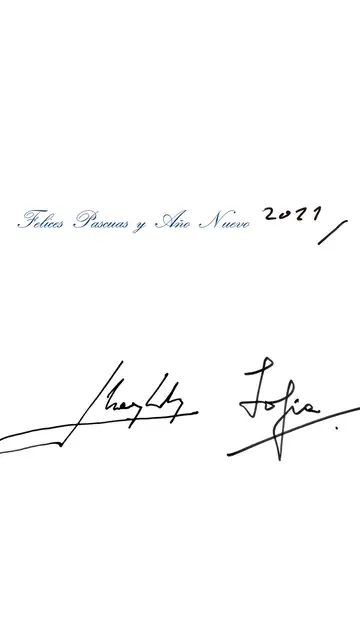 Felices Pascuas y Año Nuevo 2021
Sofía